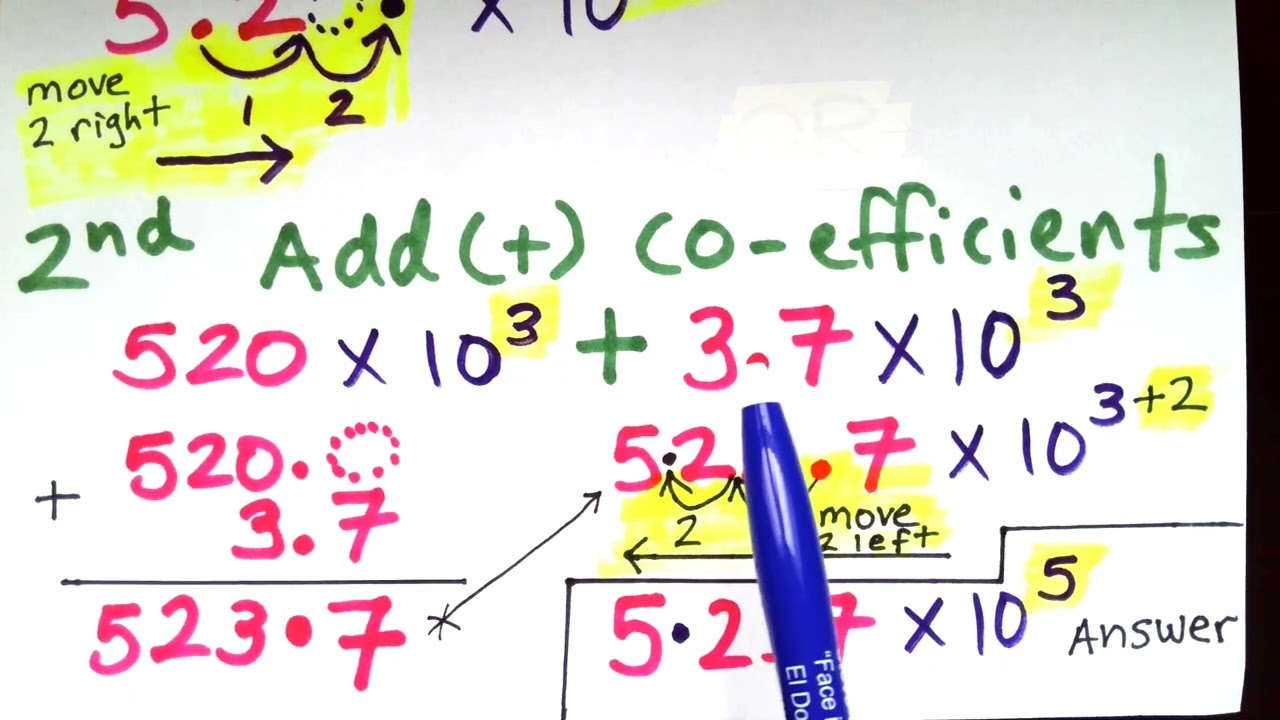 5.2 x 10
move
2 right
1 2
2nd Add (+) co-efficients
520 x 10³ + 3.7 x 10³
520.0
+ 3.7
523.7
52 .7 x 10³⁺²
2
move
2 left
5.2 7 x 10⁵ Answer
"Face
El Do